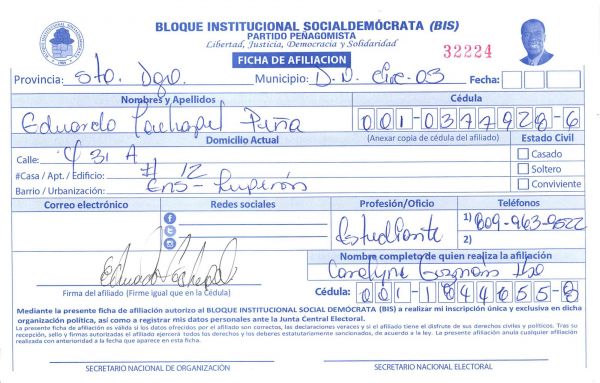 BLOQUE INSTITUCIONAL SOCIALDEMÓCRATA (BIS)
PARTIDO PEÑAGOMISTA
Libertad, Justicia, Democracia y Solidaridad
FICHA DE AFILIACION 32224
Provincia: Sto. Dgo. Municipio: D.N. Circ-03 Fecha:
Nombres y Apellidos Cédula
Eduardo Peña 001-0377928-6
Domicilio Actual (Anexar copia de cédula del afiliado) Estado Civil
Calle: C/ 31 A Casado
#Casa / Apt. / Edificio: # 12 Soltero
Barrio / Urbanización: Ens- Luperón Conviviente
Correo electrónico Redes sociales Profesión/Oficio Teléfonos
Estudiante 1) 809-963-9522
2)
Nombre completo de quien realiza la afiliación
Guzmán
Firma del afiliado (Firme igual que en la Cédula) Cédula: 001-1844655-8
Mediante la presente ficha de afiliación autorizo al BLOQUE INSTITUCIONAL SOCIAL DEMÓCRATA (BIS) a realizar mi inscripción única y exclusiva en dicha
organización política, así como a registrar mis datos personales ante la Junta Central Electoral.
La presente ficha de afiliación es válida si los datos ofrecidos por el afiliado son correctos, las declaraciones veraces y si el afiliado tiene el disfrute de sus derechos civiles y políticos. Tras su
recepción, sello y firmas autorizadas el afiliado ejercerá todos los derechos y los deberes estatutariamente sancionados, de acuerdo a la ley. La presente afiliación anula cualquier afiliación
realizada con anterioridad a la fecha que aparece en esta ficha.
SECRETARIO NACIONAL DE ORGANIZACIÓN SECRETARIO NACIONAL ELECTORAL